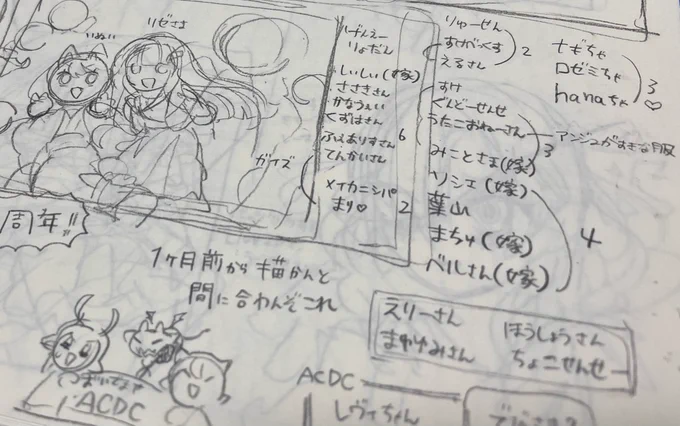 りゅーせん
すがっくす
えるさん
2
ナギちゃ
ロゼミちゃ
hanaちゃ
3
♡
いぬい
リゼさま
げんえー
りょだん
しいしい(嫁)
ささきさん
かなうぇい
くずはさん
ふぇありすさん
てんかいさん
6
ガイズ
メイカニシパ
まり♡
2
すけ
ぐんどーせんせ
うたこおねーさん
3
アンジュがすきな服
みことさま(嫁)
ソシエ(嫁)
葉山
まちゅ(嫁)
ベルさん(嫁)
4
周年!!
1ヶ月前から描かんと
間に合わんぞこれ
えりーさん
まゆゆみさん
ほうしょうさん
ちょこせんせー
ACDC
ACDC
レヴィちゃん